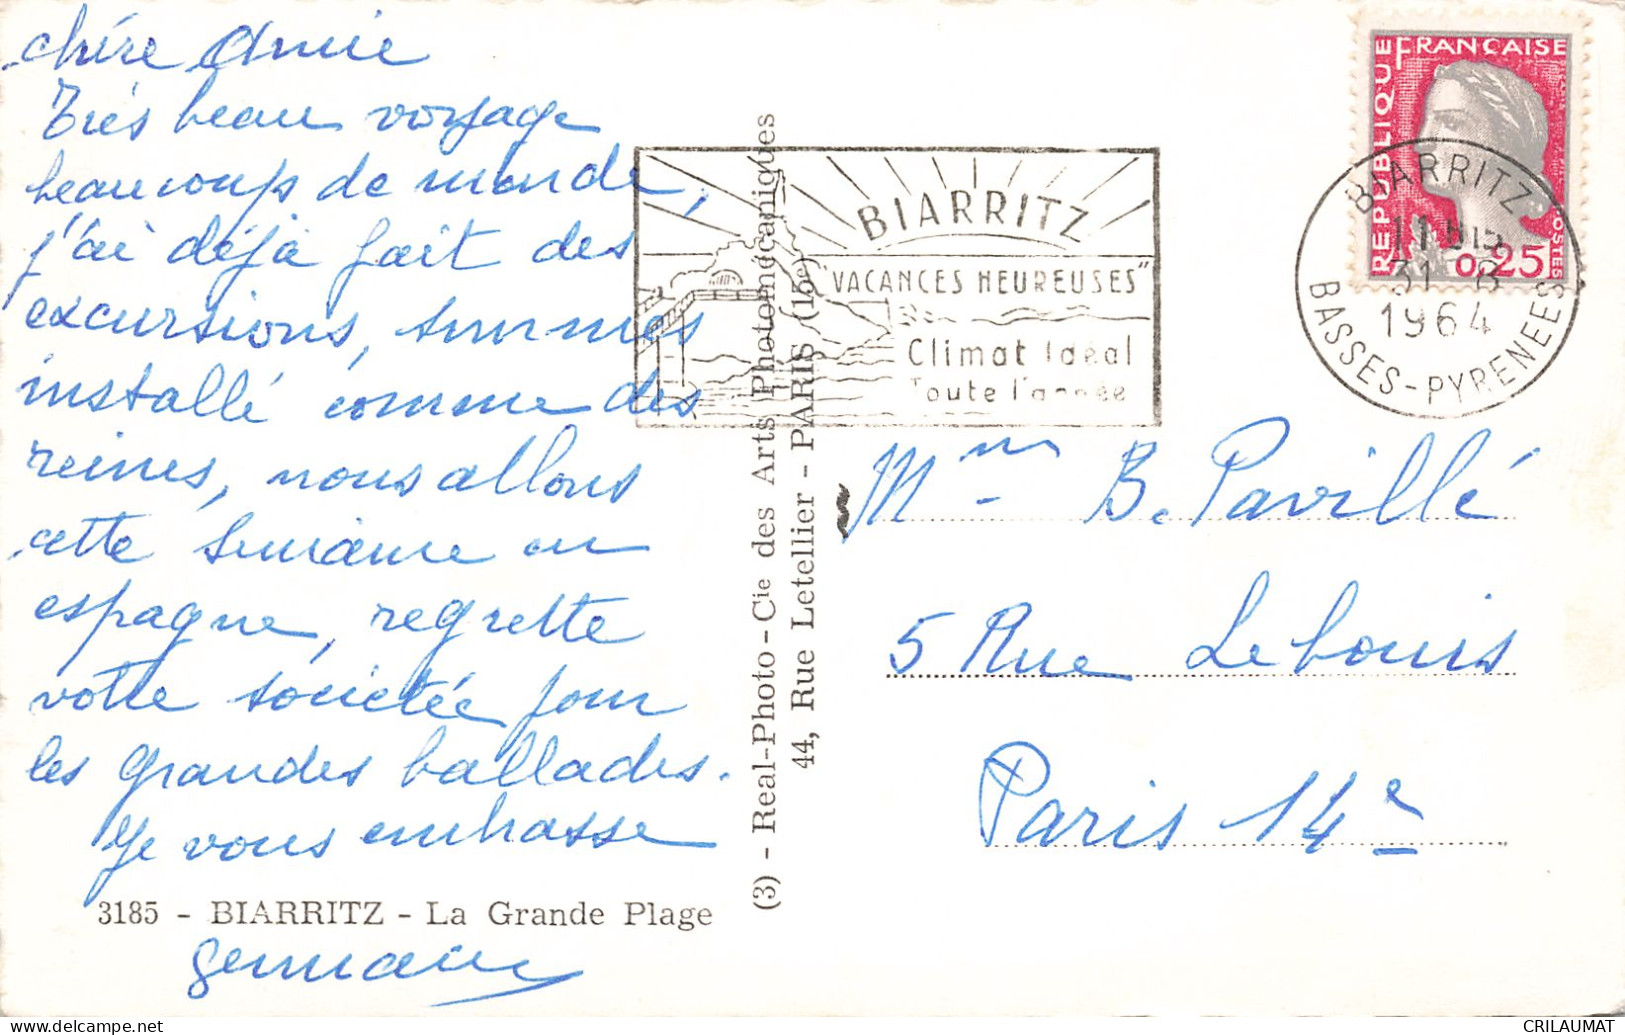 chère Amie
Très beau voyage
beaucoup de monde,
j'ai déjà fait des
excursions, sommes
installé comme des
reines, nous allons
cette semaine en
espagne, regrette
votre société pour
les grandes ballades.
Je vous embrasse
3185 - BIARRITZ - La Grande Plage
germaine
(3) - Real-Photo-Cie des Arts Photomécaniques
44, Rue Letellier - PARIS (15e)
BIARRITZ
"VACANCES HEUREUSES"
Climat Idéal
Toute l'année
RÉPUBLIQUE FRANÇAISE
0,25
POSTES
BIARRITZ
31 - 8
1964
BASSES-PYRENEES
Mme B. Pavillé
5 Rue Lebouis
Paris 14e
delcampe.net
CRILAUMAT